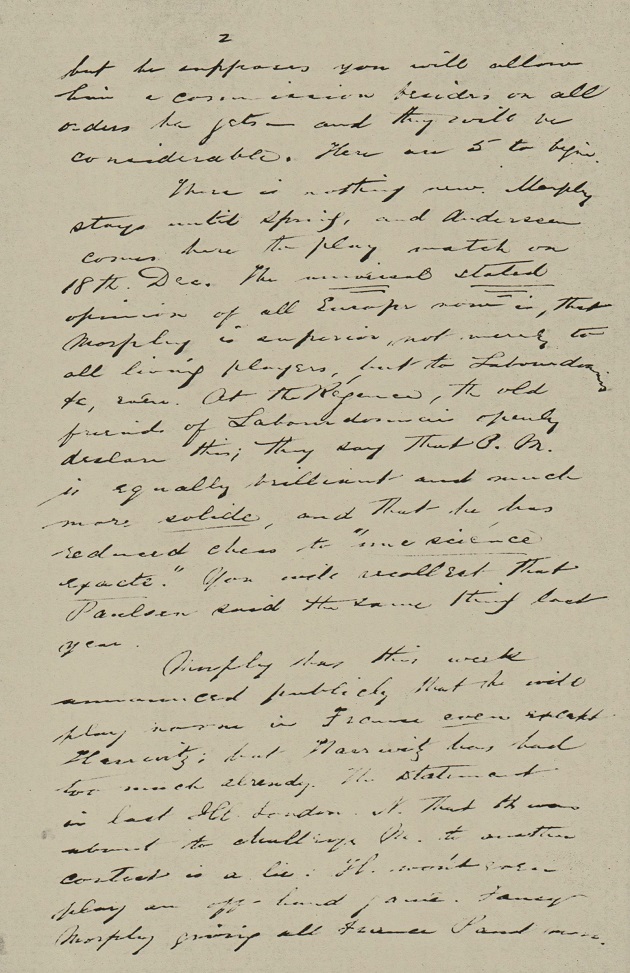 2
but he supposes you will allow
him a commission besides on all
orders he gets — and they will be
considerable. Here are 5 to begin.
There is nothing new. Morphy
stays until spring, and Anderssen
comes here to play match on
18th. Dec. The universal stated
opinion of all Europe now is, that
Morphy is superior, not merely to
all living players, but to Labourdonnais
&c, even. At the Régence, the old
friends of Labourdonnais openly
declare this; they say that P. M.
is equally brilliant and much
more solide, and that he has
reduced chess to "une science
exacte." You will recollect that
Paulsen said the same thing last
year.
Morphy has this week
announced publicly that he will
play no one in France even except
Harrwitz; but Harrwitz has had
too much already. The statement
in last Ill. London N. that H was
about to challenge M. to another
contest is a lie. H. won't even
play an off-hand game. Fancy
Morphy giving all France P and move.